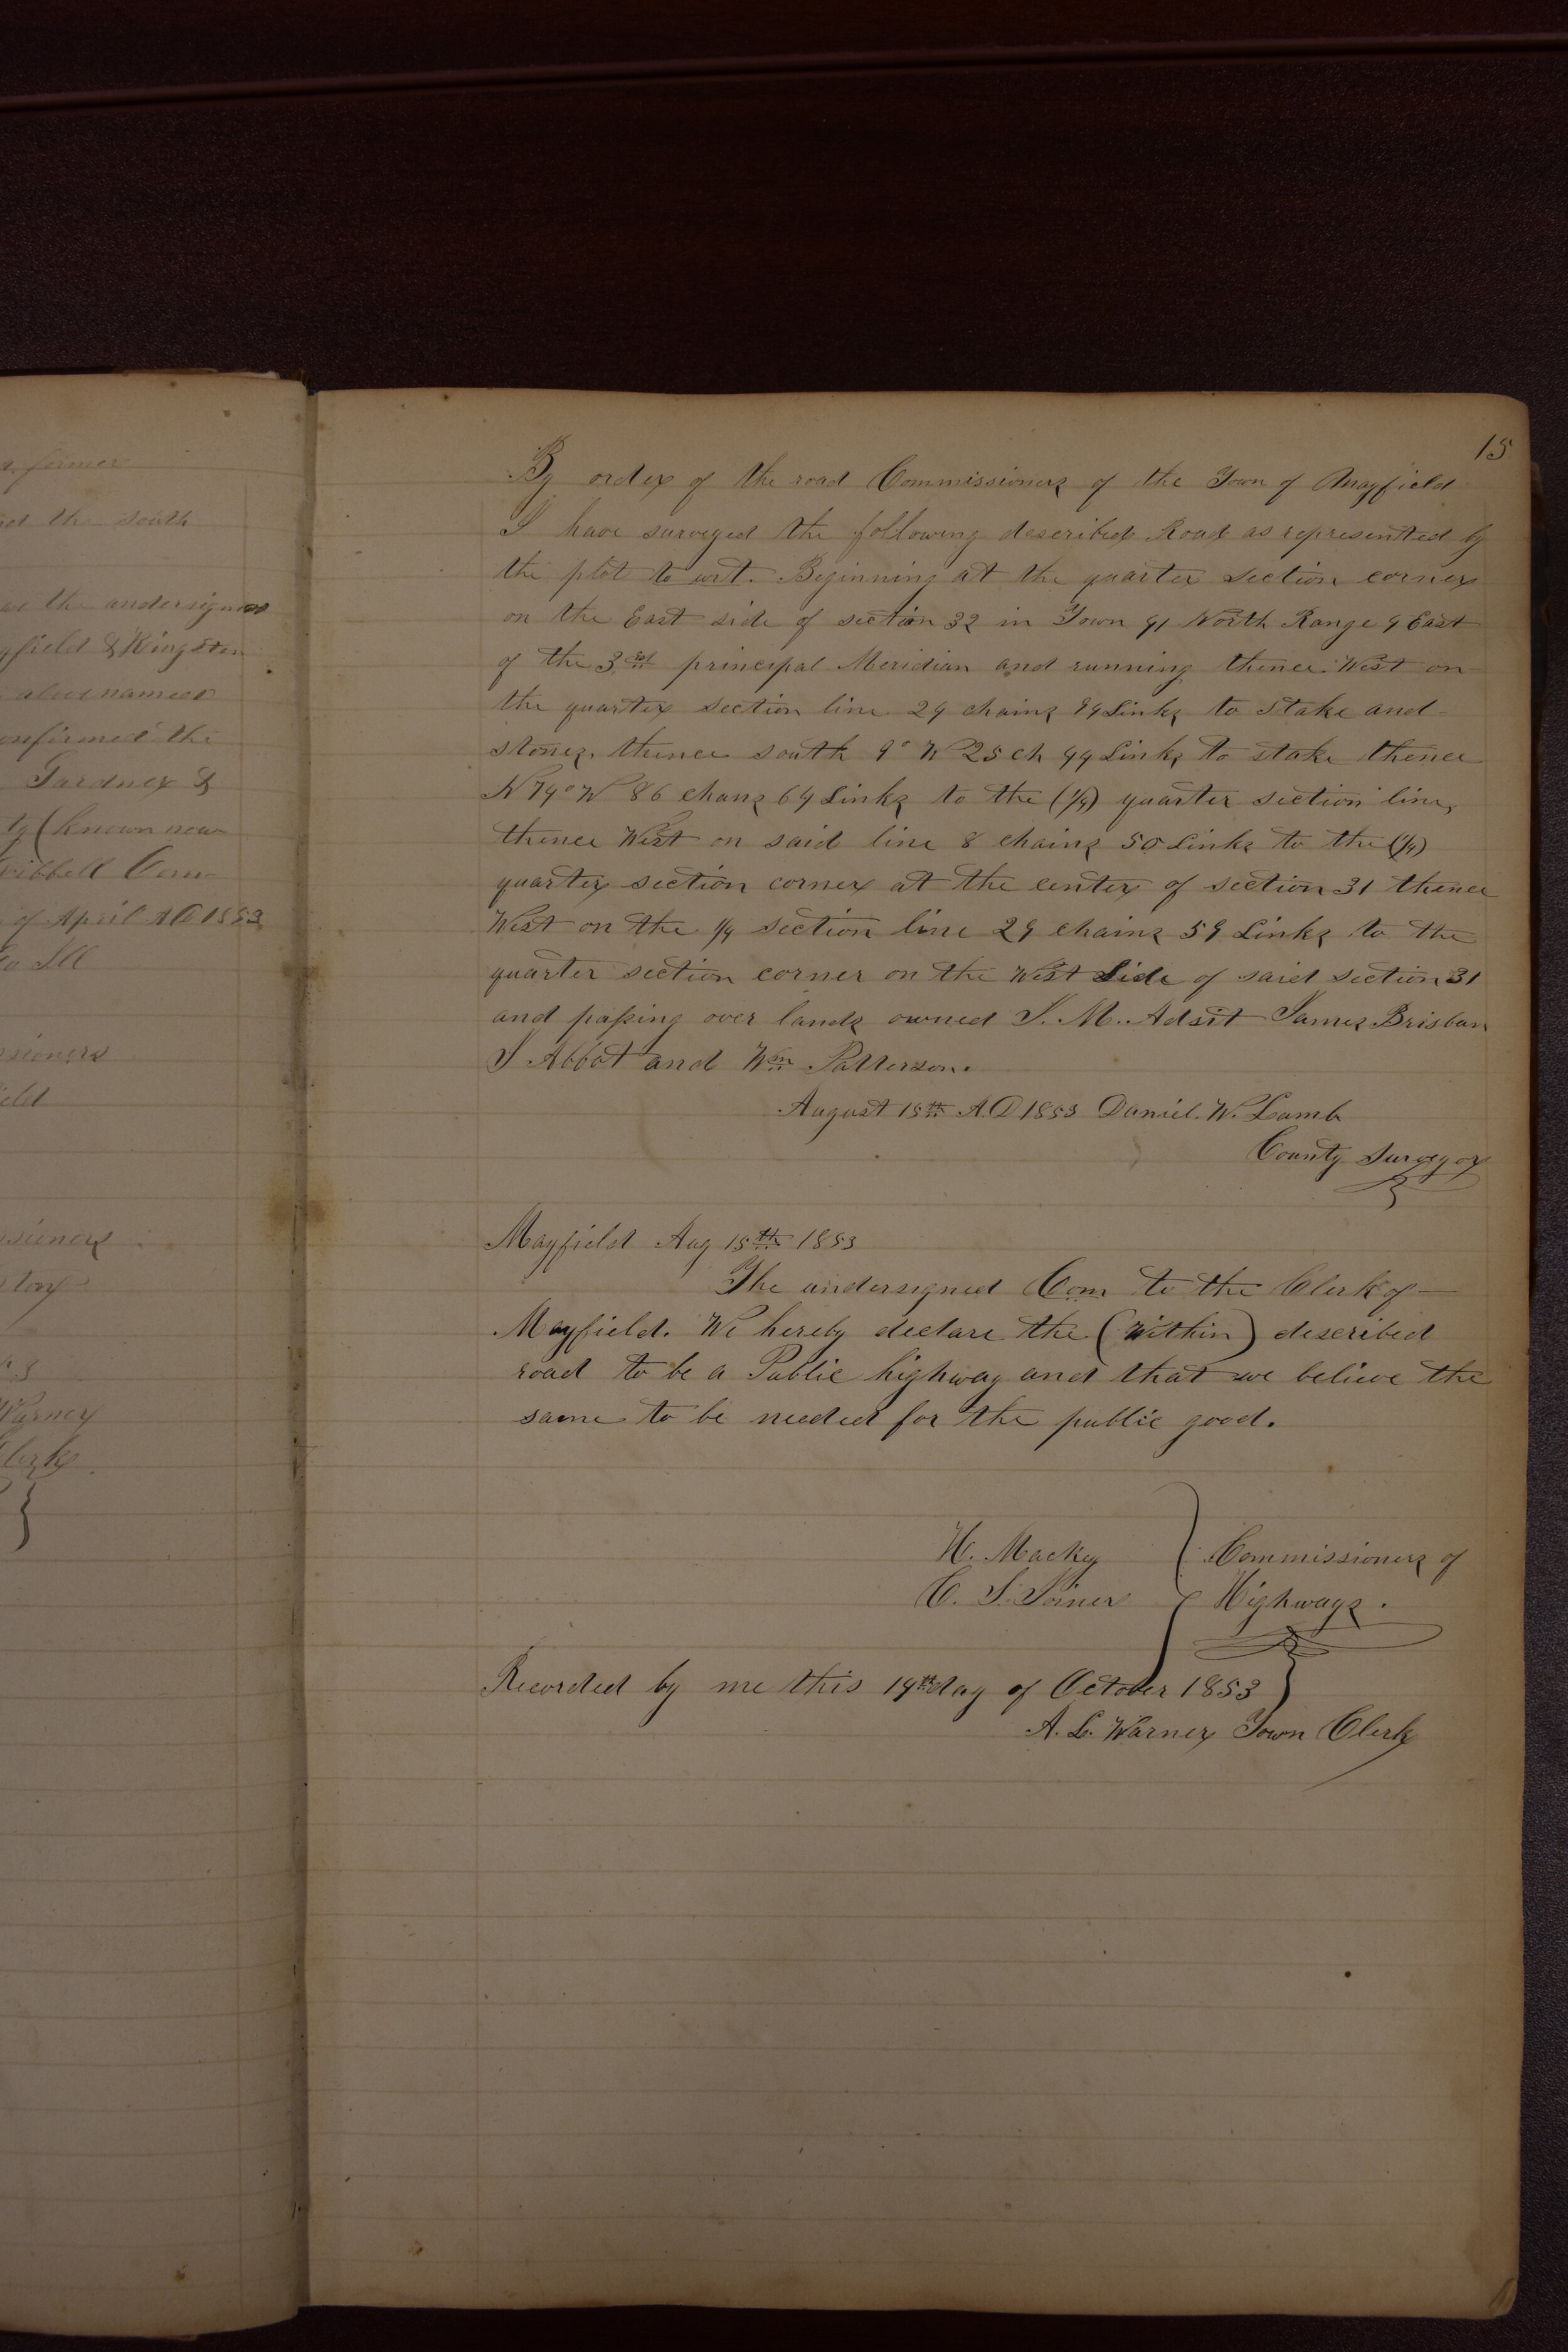 a former
and the south
we the undersigned
yfield & Kingston
above named
onfirmed the
Gardner &
ty (known now
ribbell Com
of April AD 1853
Co Ill
ssioners
ield
ssioners
Warner
Clerk
15
By order of the road Commissioners of the Town of Mayfield
I have surveyed the following described Road as represented by
the plot to wit. Beginning at the quarter section corner
on the East side of section 32 in Town 41 North Range 4 East
of the 3rd principal Meridian and running thence West on
the quarter section line 29 chains 49 Links to stake and
stones, thence south 9° W 25 ch 44 Links to stake thence
N 74° W 86 chans 64 Links to the (1/4) quarter section line,
thence West on said line 8 chains 50 Links to the (1/4)
quarter section corner at the center of section 31 thence
West on the 1/4 section line 29 chains 59 Links to the
quarter section corner on the West Side of said section 31
and passing over lands owned S. M. Adsit James Brisban
I Abbot and Wm Patterson.
August 15th A.D 1853 Daniel. W. Lamb
County Surveyor
Mayfield Aug 15th 1853
The undersigned Com to the Clerk of
Mayfield. We hereby declare the (within) described
road to be a Public highway and that we believe the
same to be needed for the public good.
H. Macky } Commissioners of
C. S. Joiner Highways.
Recorded by me this 19th day of October 1853 }
A. L. Warner Town Clerk